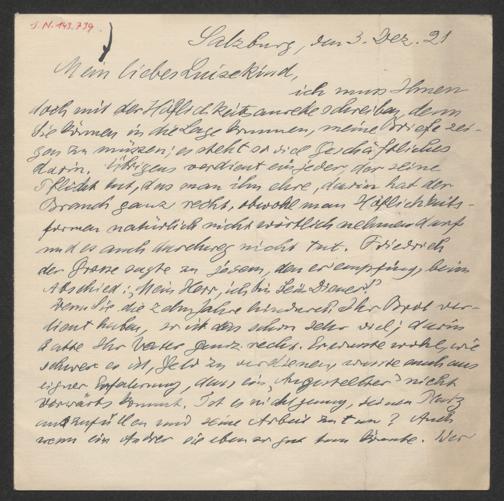 I.N. 143.739
Salzburg, den 3. Dez. 21
Mein liebes Luisekind,
ich muss Ihnen
doch mit der Höflichkeitsanrede schreiben, denn
Sie können in die Lage kommen, meine Briefe zei-
gen zu müssen; es steht so viel Geschäftliches
darin. Übrigens verdient ein jeder, der seine
Pflicht tut, das man ihn ehre, darin hat der
Brauch ganz recht, obwohl man Höflichkeits-
formen natürlich nicht wörtlich nehmen darf
und es auch durchweg nicht tut. Friedrich
der Grosse sagte zu jedem, den er empfing, beim
Abschied: „Mein Herr, ich bin Sein Diener!"
Wenn Sie die zehn Jahre hindurch Ihr Brot ver-
dient haben, so ist das schon sehr viel; darin
hatte Ihr Vater ganz recht. Er wusste wohl, wie
schwer es ist, Geld zu verdienen, wusste auch aus
eigner Erfahrung, dass ein „Angestellter" nicht
vorwärts kommt. Ist es nicht genug, seinen Platz
auszufüllen und seine Arbeit zu tun? Auch
wenn ein Andrer sie eben so gut tun könnte. Wer